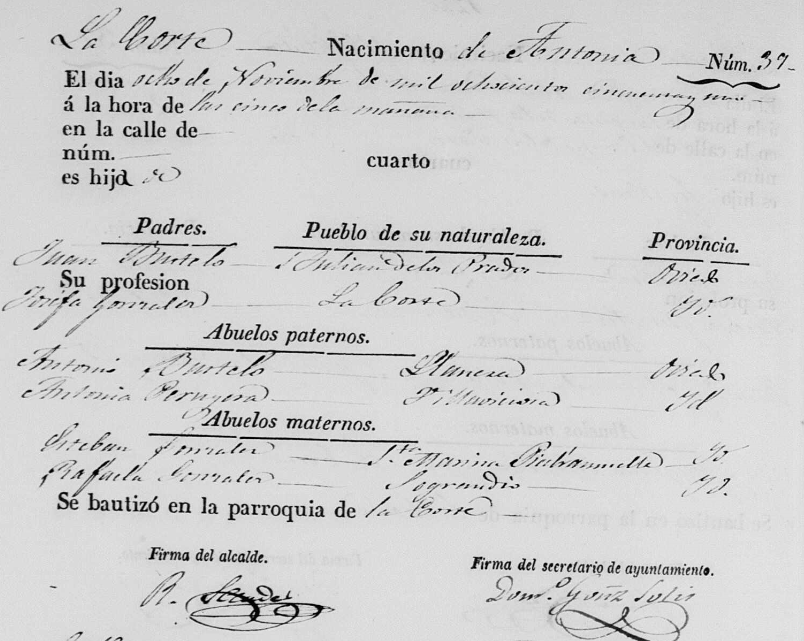 La Corte Nacimiento de Antonia Núm. 37
El dia ocho de Noviembre de mil ochocientos cincuenta y uno
á la hora de las cinco de la mañana
en la calle de
núm. cuarto
es hija de
Padres. Pueblo de su naturaleza. Provincia.
Juan Bustelo S. Julian de los Prados Oviedo
Su profesion
Josefa Gonzalez La Corte Yd.
Abuelos paternos.
Antonio Bustelo Llanera Oviedo
Antonia Peruyera Villaviciosa Yd
Abuelos maternos.
Esteban Gonzalez Sta Marina Piedramuelle Yd.
Rafaela Gonzalez Sograndio Yd.
Se bautizó en la parroquia de la Corte
Firma del alcalde. Firma del secretario de ayuntamiento.
R. Domo. Gonz Solis